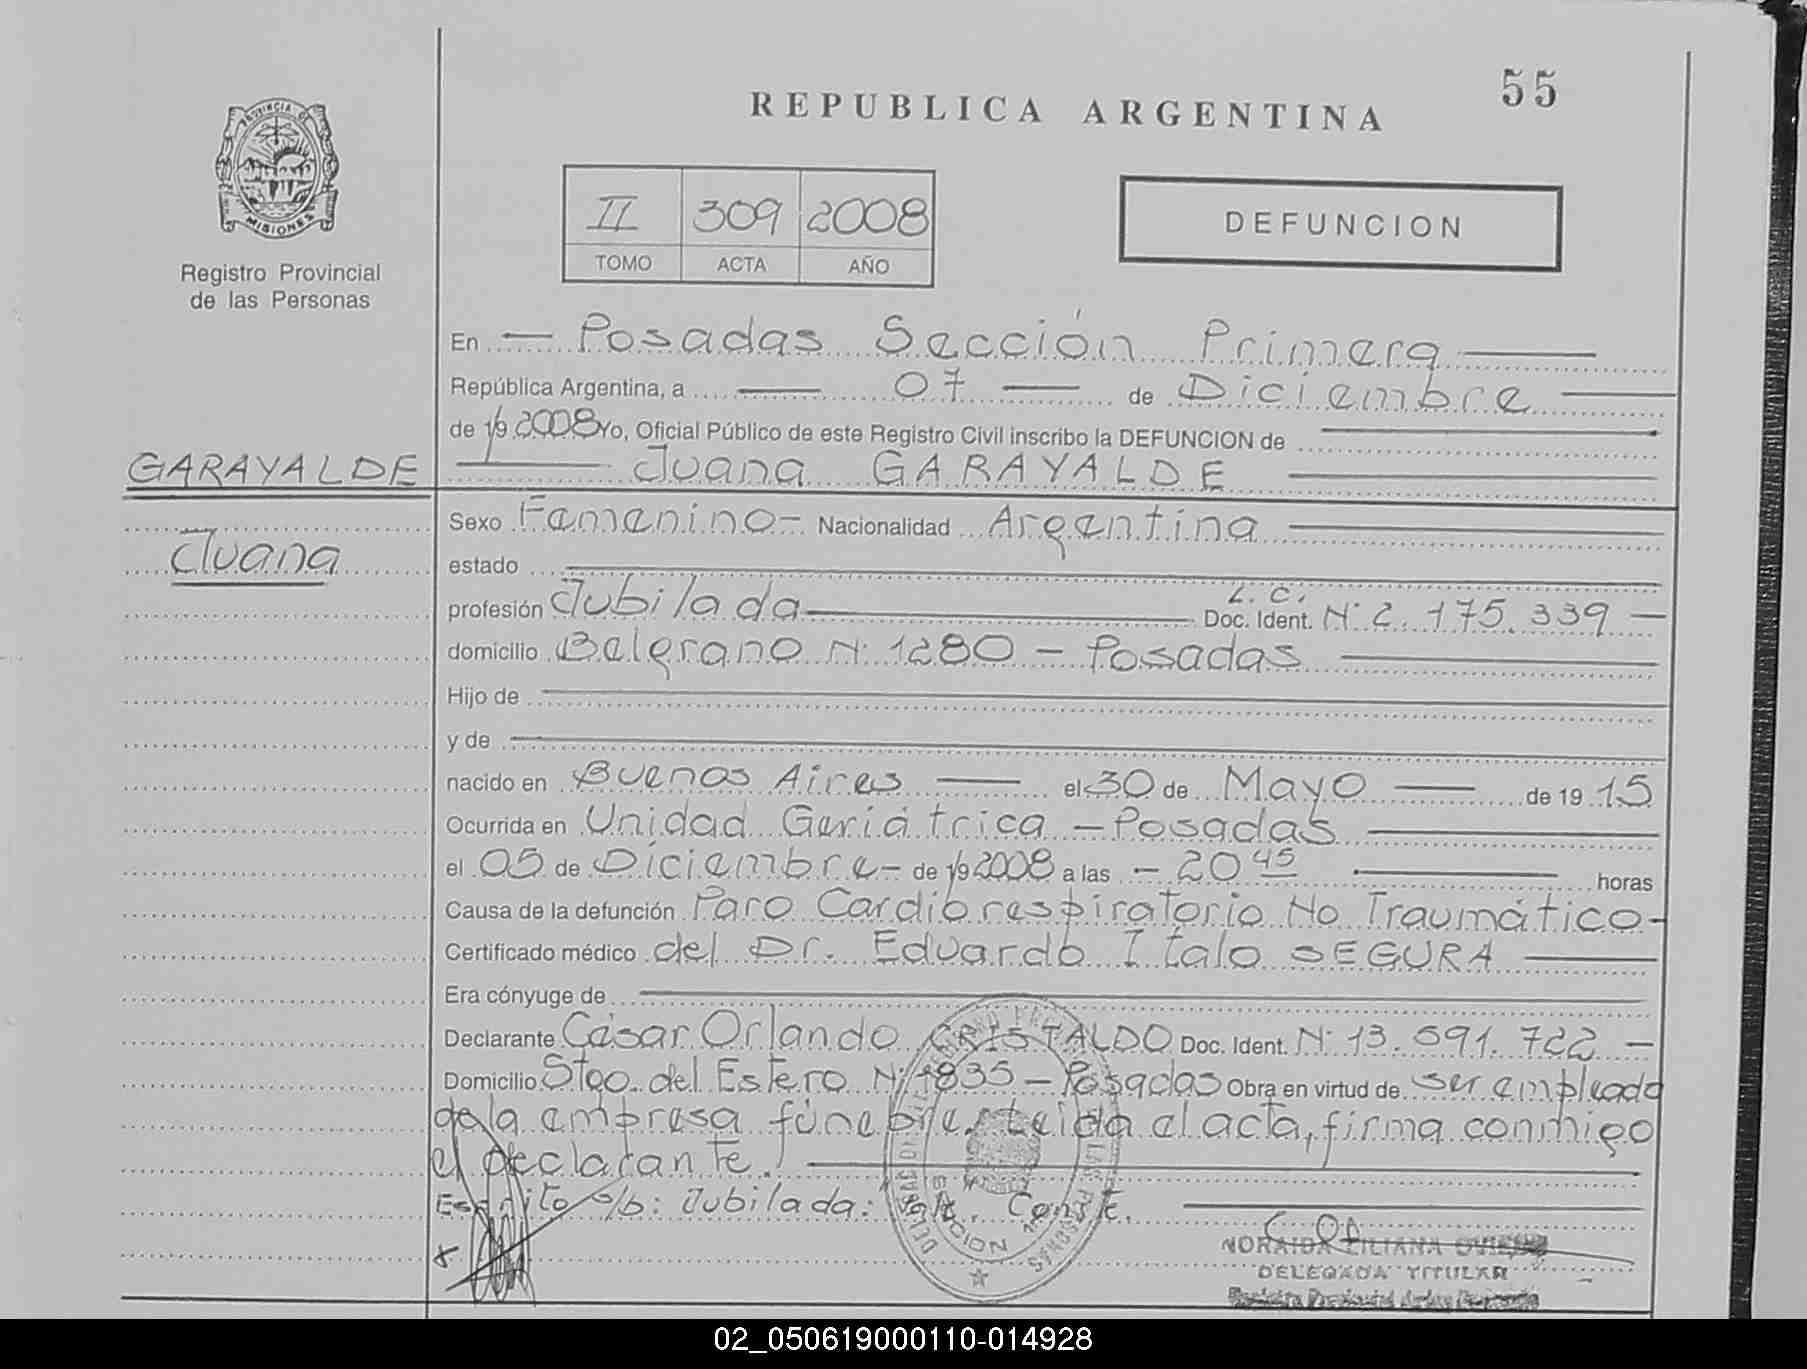 55
REPUBLICA ARGENTINA
PROVINCIA DE
MISIONES
Registro Provincial
de las Personas
II 309 2008
TOMO ACTA AÑO
DEFUNCION
En Posadas Sección Primera
República Argentina, a 07 de Diciembre
de 19 2008 Yo, Oficial Público de este Registro Civil inscribo la DEFUNCION de
GARAYALDE
Juana GARAYALDE
Juana
Sexo Femenino - Nacionalidad Argentina
estado
L. C.
profesión Jubilada Doc. Ident. Nº 2.175.339
domicilio Belgrano Nº 1280 - Posadas
Hijo de
y de
nacido en Buenos Aires el 30 de Mayo de 19 15
Ocurrida en Unidad Geriátrica - Posadas
el 05 de Diciembre - de 19 2008 a las - 20 45 horas
Causa de la defunción Paro Cardiorespiratorio No Traumático -
Certificado médico del Dr. Eduardo Italo SEGURA
Era cónyuge de
Declarante César Orlando CRISTALDO Doc. Ident. Nº 13.591.722 -
Domicilio Stgo. del Estero Nº 1835 - Posadas Obra en virtud de ser empleado
de la empresa fúnebre. Leida el acta, firma conmigo
el declarante.
Escrito s/b: Jubilada: Conste.
NORAIDA LILIANA OVIEDO
DELEGADA TITULAR
02_050619000110-014928